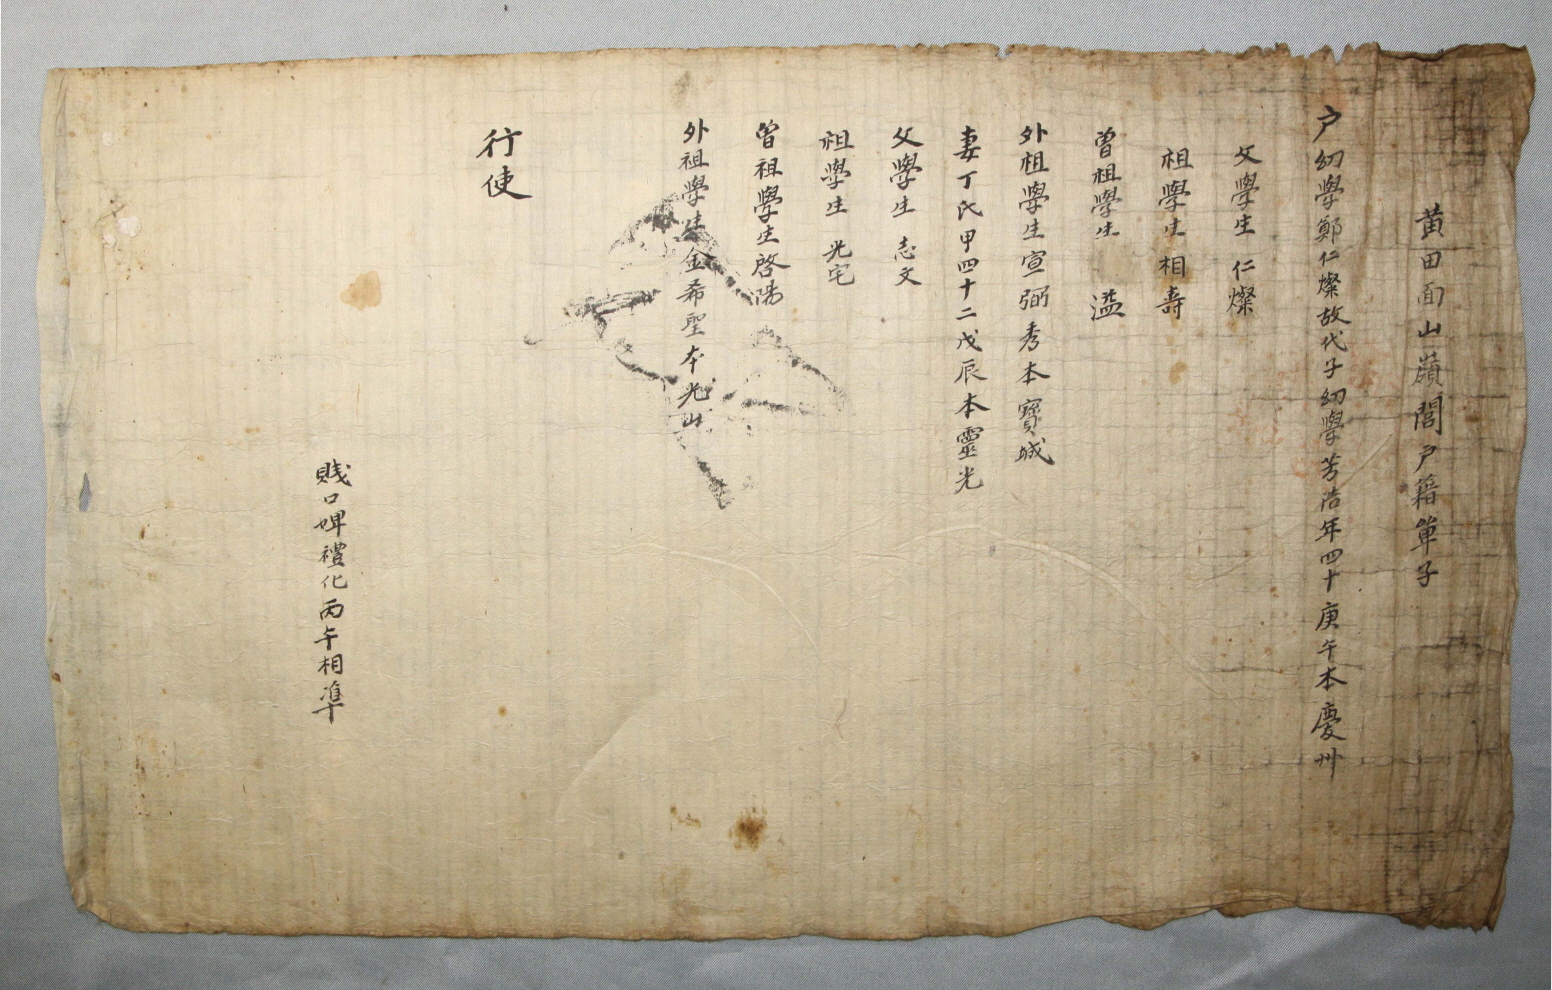 黃田面山嶺閭戶籍單子
戶幼學鄭仁燦故代子幼學芳浩年四十庚午本慶州
父學生 仁燦
祖學生 相壽
曾祖學生 溢
外祖學生宣弼秀本寶城
妻丁氏甲四十二戊辰本靈光
父學生 志文
祖學生 光宅
曾祖學生啓陽
外祖學生金希聖本光山
行使
賤口婢禮化丙午相準